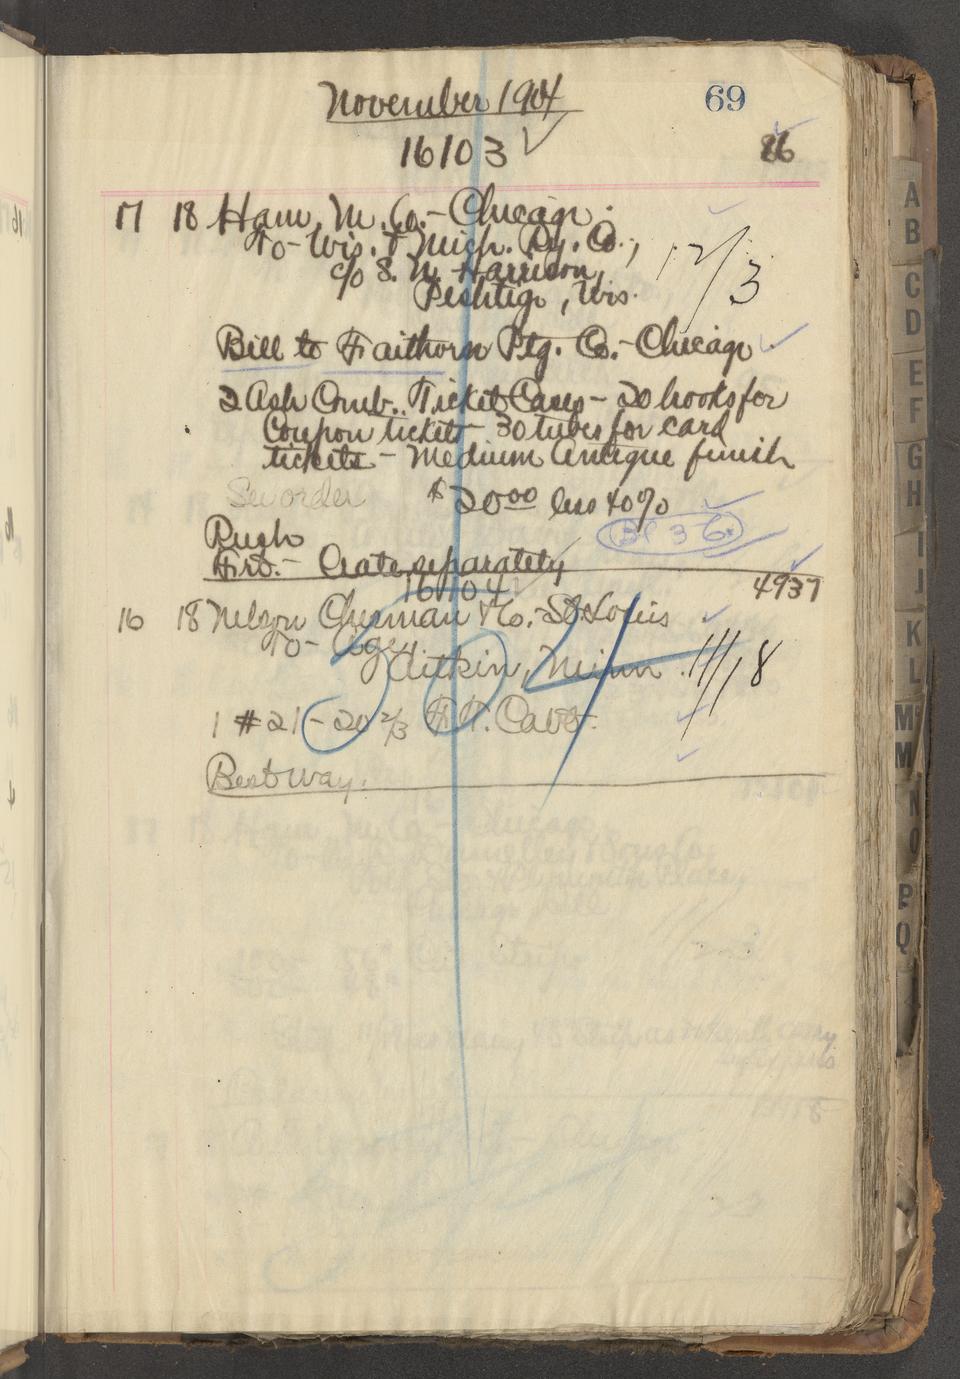 November 1904
69
16103
86
17 18 Ham. M. Co. - Chicago.
To - Wis. & Mich. Ry. Co.,
c/o S. N. Harrison,
Peshtigo, Wis.
12/3
Bill to Faithorn Ptg. Co. - Chicago
2 Ash Comb. Ticket Cases - 20 hooks for
coupon tickets - 30 tubes for card
tickets - Medium Antique finish
See order $20.00 less 40%
Rush
Frt. - Crate separately
4937
16104
16 18 Nelson Chesman & Co. - St Louis
To - Age,
Aitkin, Minn.
11/18
1 #21 - 20 2/3 Cabt.
Best way.